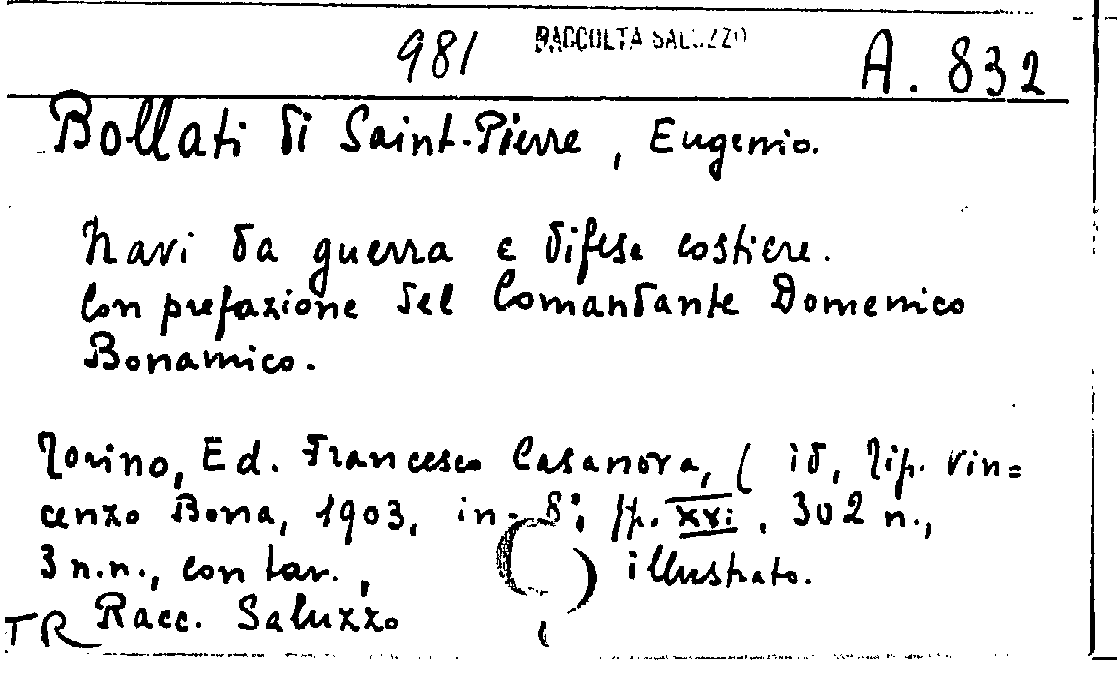 981 RACCOLTA SALUZZO A. 832
Bollati di Saint-Pierre, Eugenio.
Navi da guerra e difese costiere.
Con prefazione del Comandante Domenico
Bonamico.
Torino, Ed. Francesco Casanova, ( id, Tip. Vin=
cenzo Bona, 1903, in- 8°, pp. XXVI, 302 n.,
3 n.n., con tav., illustrato.
TR Racc. Saluzzo